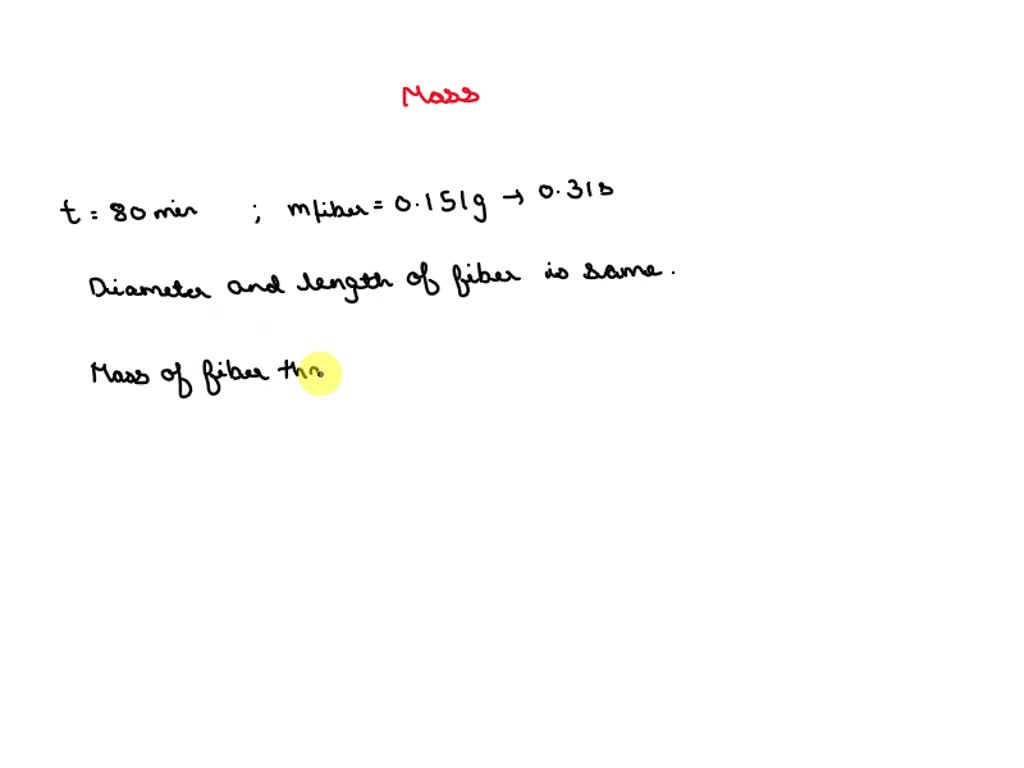 Mass
t = 80 min ; mfiber = 0.151g → 0.31s
Diameter and length of fiber is same.
Mass of fiber thr